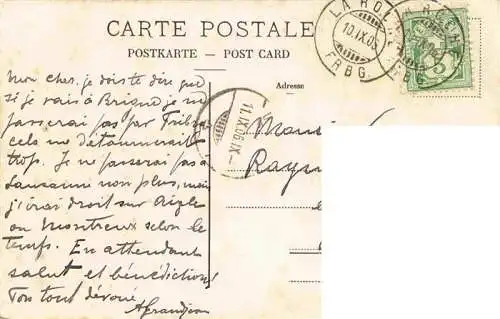 CARTE POSTALE
POSTKARTE — POST CARD
Adresse
LA ROCHE
10.IX.06
FRBG.
LA ROCHE
FRBG.
5
11.IX.06.IX-
Mon cher, je dois te dire que
si je vais à Brigue je ne
passerai pas par Fribg
cela me détournerait
trop. Je ne passerai pas à
Lausanne non plus, mais
j'irai droit sur Aigle
ou Montreux selon le
temps. En attendant
salut et bénédiction!
Ton tout dévoué
AGrandjean
Monsi
Raym